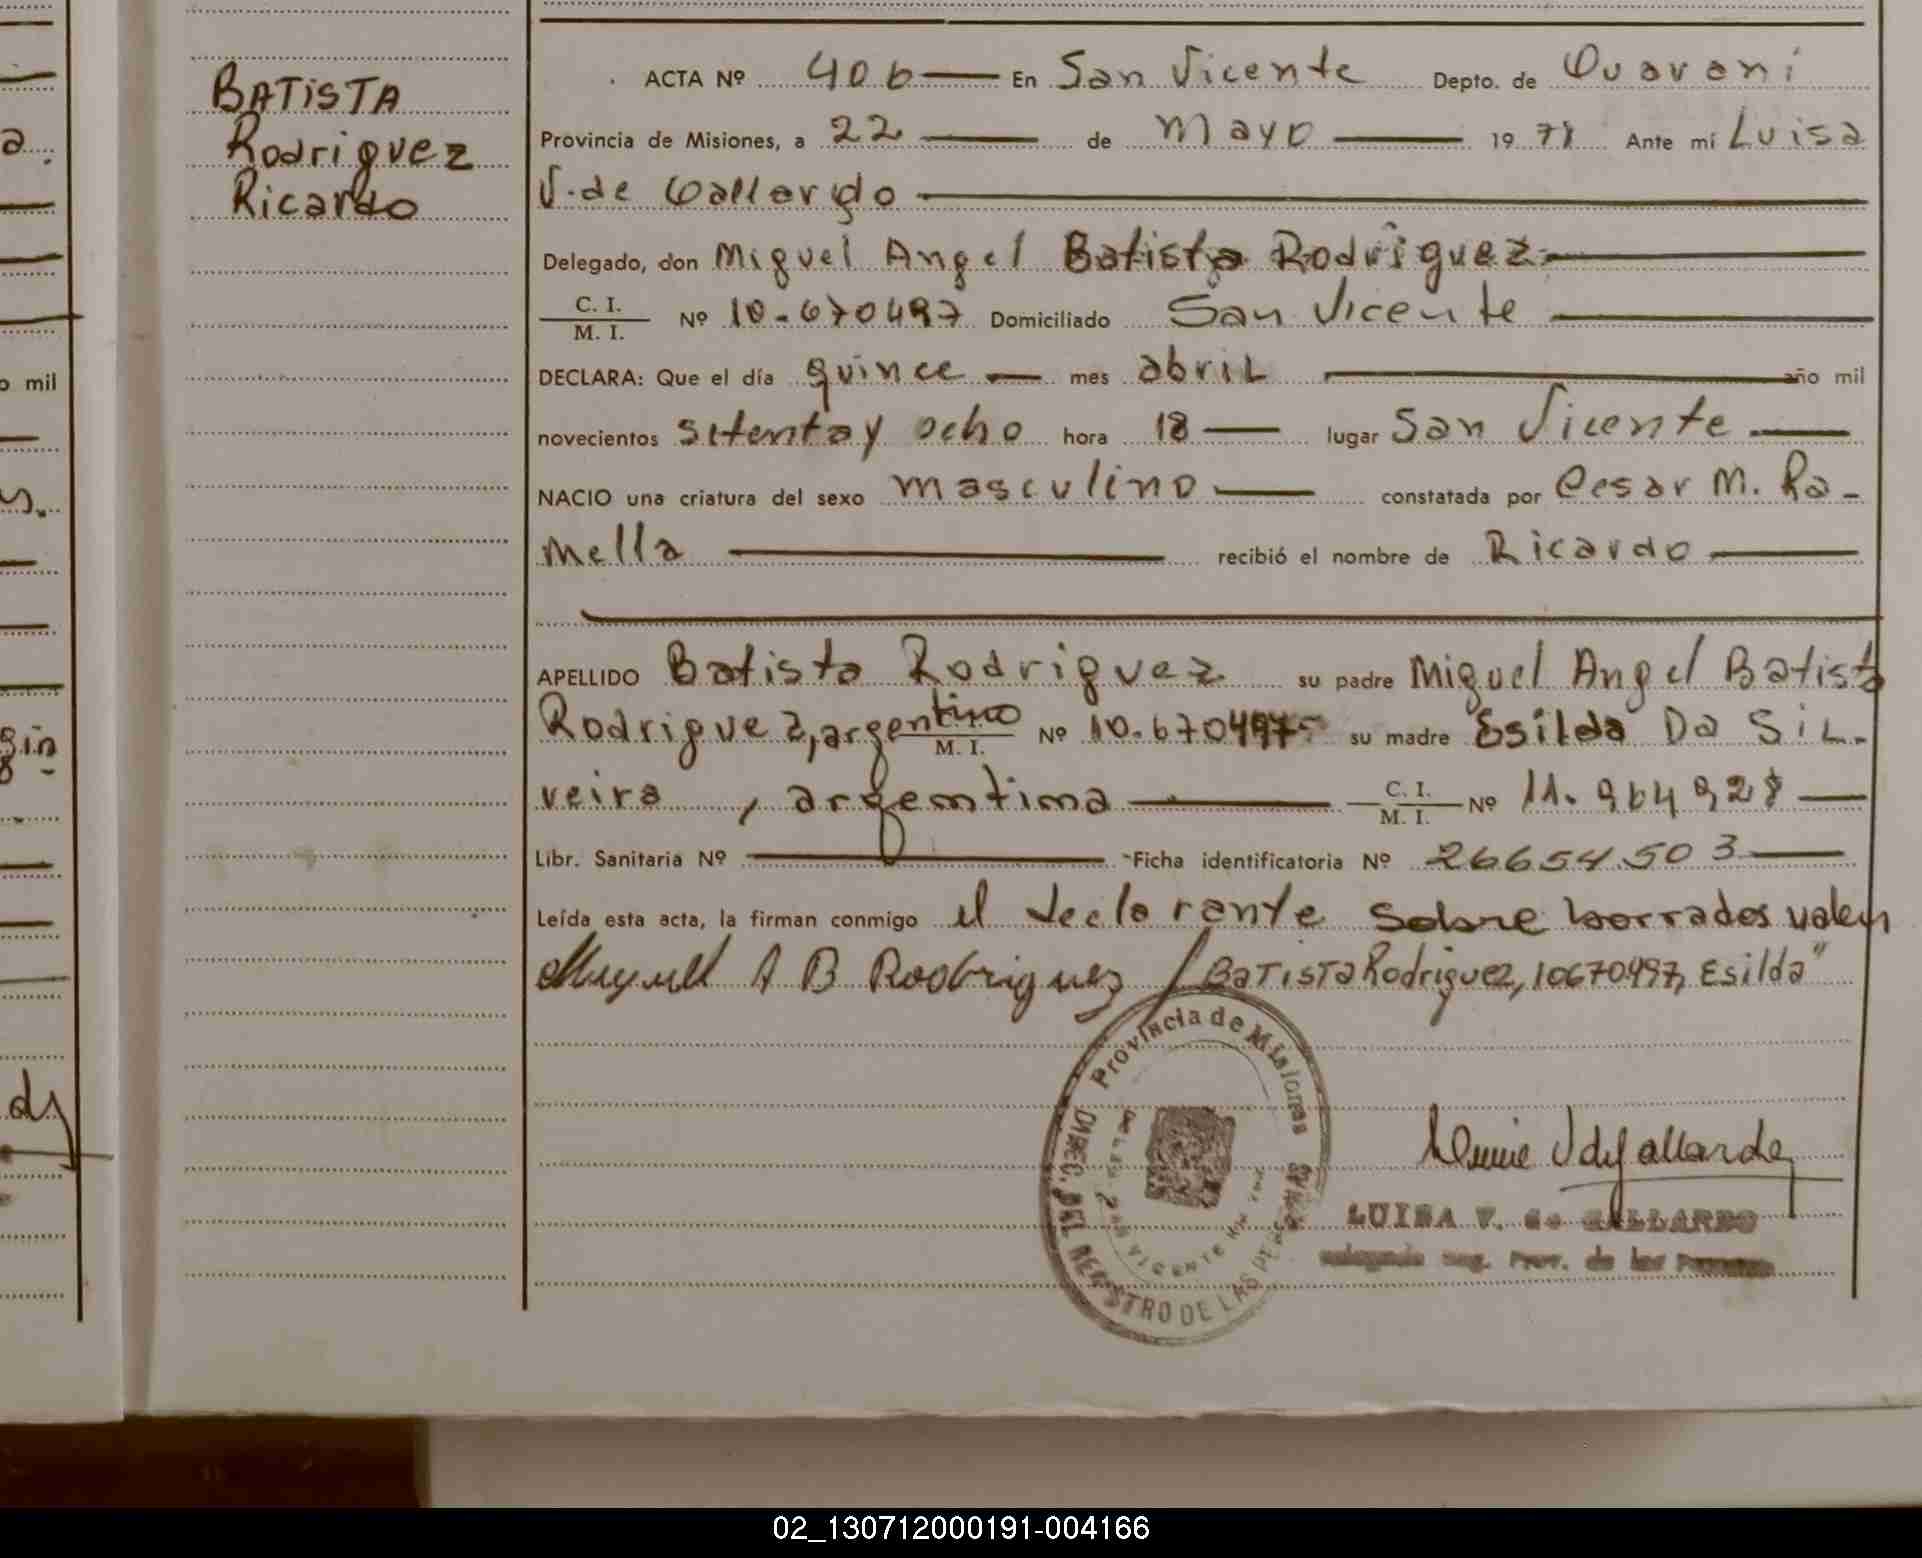 BATISTA
Rodriguez
Ricardo
ACTA Nº 406 En San Vicente Depto. de Guarani
Provincia de Misiones, a 22 de Mayo 1978 Ante mí Luisa
V. de Gallardo
Delegado, don Miguel Angel Batista Rodriguez
C. I.
M. I. Nº 10.670497 Domiciliado San Vicente
DECLARA: Que el día quince mes abril año mil
novecientos setenta y ocho hora 18 lugar San Vicente
NACIO una criatura del sexo masculino constatada por Cesar M. Ra-
mella recibió el nombre de Ricardo
APELLIDO Batista Rodriguez su padre Miguel Angel Batista
Rodriguez, argentino M. I. Nº 10.670497 su madre Esilda Da Sil-
veira, argentina C. I.
M. I. Nº 11.964928
Libr. Sanitaria Nº Ficha identificatoria Nº 26654.503
Leída esta acta, la firman conmigo el declarante Sobre borrados valen
Miguel A B Rodriguez / BATISTA Rodriguez, 10670497, Esilda"
Provincia de Misiones
DIREC. DEL REGISTRO DE LAS
SAN VICENTE
LUISA V. de GALLARDO
o mil